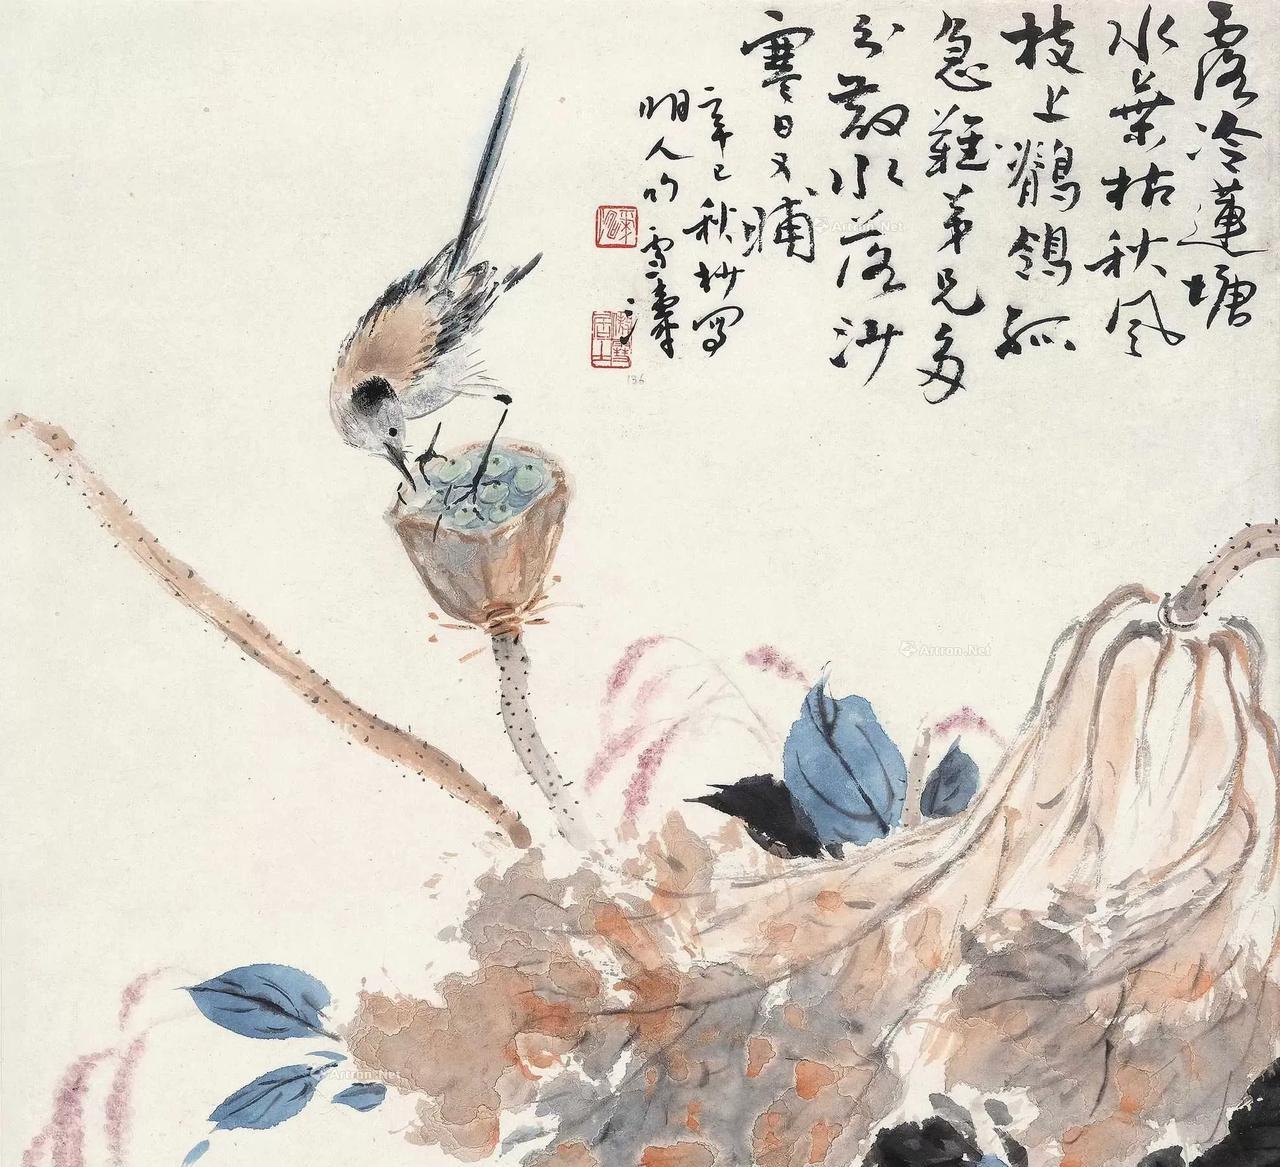 露冷蓮塘
水葉枯秋風
枝上鶺鴒孤
急難弟兄多
分散水落沙
寒日又晡
辛巳秋杪寫
明人句雪濤
136
Artron.Net
Artron.Net
Artron.Net